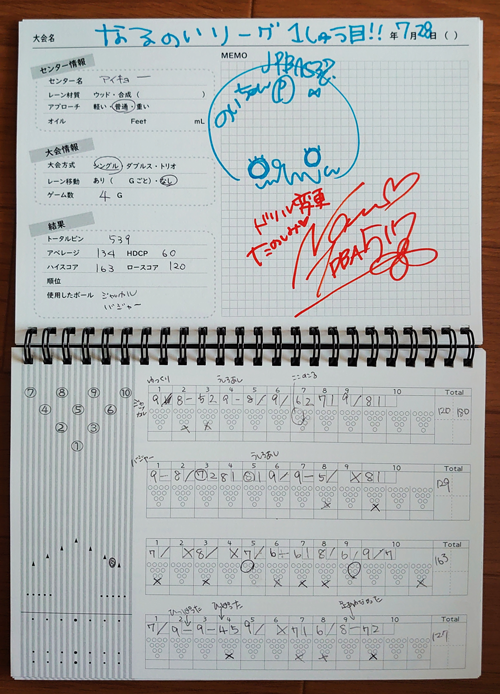 大会名 なるのいリーグ 1しゅう目!! 年 7月 28日 ( )
センター情報
センター名 アイキョー
レーン材質 ウッド・合成 ( )
アプローチ 軽い・普通・重い
オイル Feet mL
大会情報
大会方式 シングル・ダブルス・トリオ
レーン移動 あり ( Gごと)・なし
ゲーム数 4 G
結果
トータルピン 539
アベレージ 134 HDCP 60
ハイスコア 163 ロースコア 120
順位
使用したボール ジャッカル
バジャー
MEMO
JPBA
のいちゃん
ドリル変更
たのしみ♡
PBA517
⑦ ⑧ ⑨ ⑩
④ ⑤ ⑥
② ③
①
ゆっくり うしろあし
1 2 3 4 5 6 7 8 9 10 Total
120 180
バジャー うしろあし
1 2 3 4 5 6 7 8 9 10 Total
9- 8/ ⑦2 81 ⑥1 9/ 9- 5/ X 81
129
1 2 3 4 5 6 7 8 9 10 Total
7/ X 8/ X 7/ 6- 61 8/ 6/ 9/7
163
1 2 3 4 5 6 7 8 9 10 Total
7/ 9- 9- 45 9/ X 71 6/ 8- 72
127